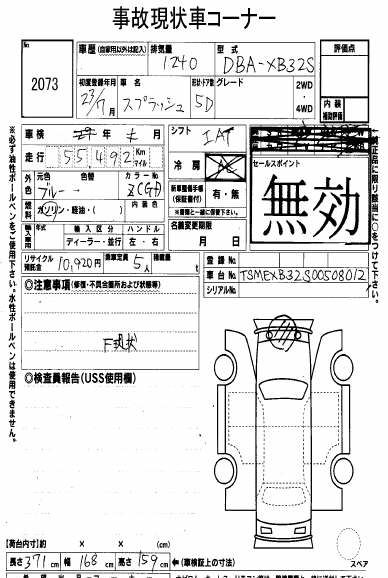 事故現状車コーナー
No.
2073
車歴 (自家用以外は記入)
排気量 1240
型式 DBA-XB32S
評価点
初度登録年月 23/7月
車名 スプラッシュ
形状・ドア数 5D
グレード
2WD・4WD
内装補助評価
車検 年 月
シフト IAT
走行 55492 Km マイル
冷房 AC
セールスポイント
無効
外色
元色 ブルー
色替
カラーNo.
燃料 ガソリン・軽油・( )
内装色
新車整備手帳(保証書付) 有・無
※書類と一緒に保管下さい。
輸入車用
年式
輸入区分 ディーラー・並行
ハンドル 左・右
名義変更期限 月 日
リサイクル預託金 10,920円
乗車定員 5人
積載量 t
登録No.
車台No. TSMEXB32S00508012
シリアルNo.
◎注意事項(修復・不具合箇所および状態等)
F現状
◎検査員報告(USS使用欄)
※必ず油性ボールペンをご使用下さい。水性ボールペンは使用できません。
純正品に限り該当に○をつけて下さい。
【荷台内寸】約 × × (cm)
長さ 371 cm 幅 168 cm 高さ 159 cm
(車検証上の寸法)
スペア